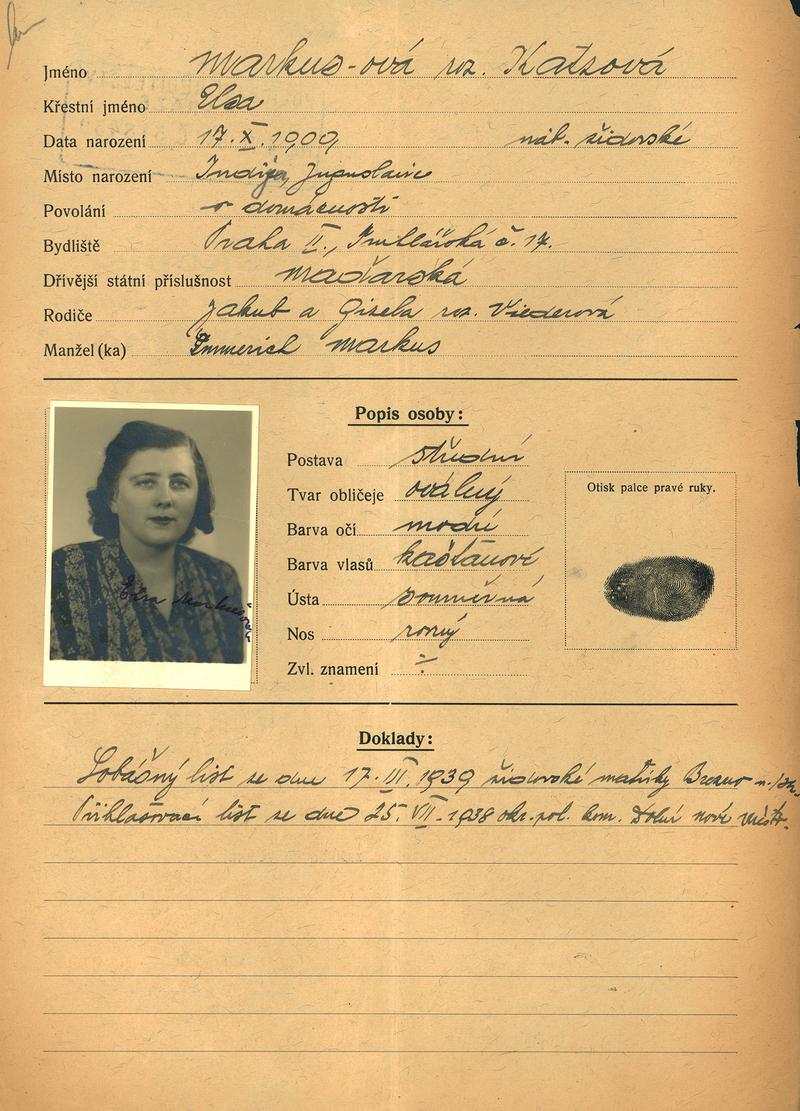 Jméno Markus-ová roz. Katsová
Křestní jméno Elsa
Data narození 17.X.1909 náb. židovské
Místo narození Indija, Jugoslavie
Povolání v domácnosti
Bydliště Praha II., č. 17.
Dřívější státní příslušnost maďarská
Rodiče Jakub a Gisela roz. Viederová
Manžel(ka) Emmerich Markus
Popis osoby:
Postava střední
Tvar obličeje oválný
Barva očí modré
Barva vlasů kaštanové
Ústa souměrná
Nos rovný
Zvl. znamení ÷
Otisk palce pravé ruky.
Elsa Markusová
Doklady:
list ze dne 17.III.1939 židovské matriky Brezno n./Hr.
Přihlašovací list ze dne 25.VII.1938 okr. pol. kom. Dolní nové město.